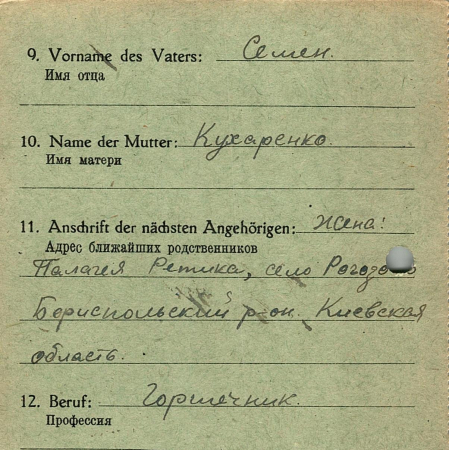 9. Vorname des Vaters: Семен.
Имя отца
10. Name der Mutter: Кухаренко.
Имя матери
11. Anschrift der nächsten Angehörigen: Жена:
Адрес ближайших родственников
Палагея Ретика, село
Бериспольский р-он. Киевская
область.
12. Beruf: Горшечник.
Профессия